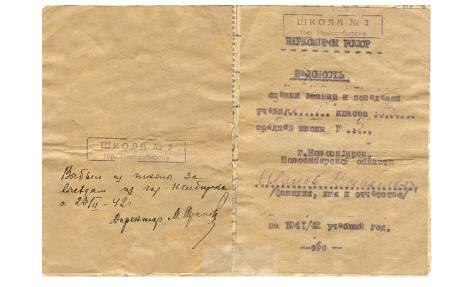 ШКОЛА № 3
гор. Новосибирска
Выбыл из школы за
выездом из гор. Н-сибирска
с 28/II-42 г.
Директор М.
ШКОЛА № 3
гор. Новосибирска
НАРКОМПРОС РСФСР
ВЕДОМОСТЬ
оценки знаний и поведения
класса
средней школы №
г.Новосибирск,
Новосибирской области
/фамилия, имя и отчество/
на 1941/42 учебный год.